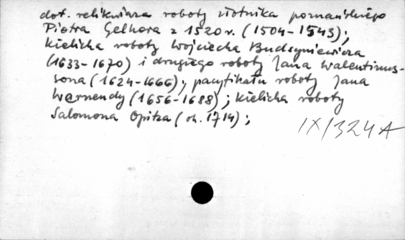 dot. relikwiarza roboty złotnika poznańskiego
Piotra Gelhora z 1520 r. (1504-1543);
kielicha roboty Wojciecha Budzyniewicza
(1633-1670) i drugiego roboty Jana Walentinus-
sona (1624-1666); pacyfikału roboty Jana
Wernendy (1656-1688); kielicha roboty
Salomona Opitza (ok. 1714);
IX/324A